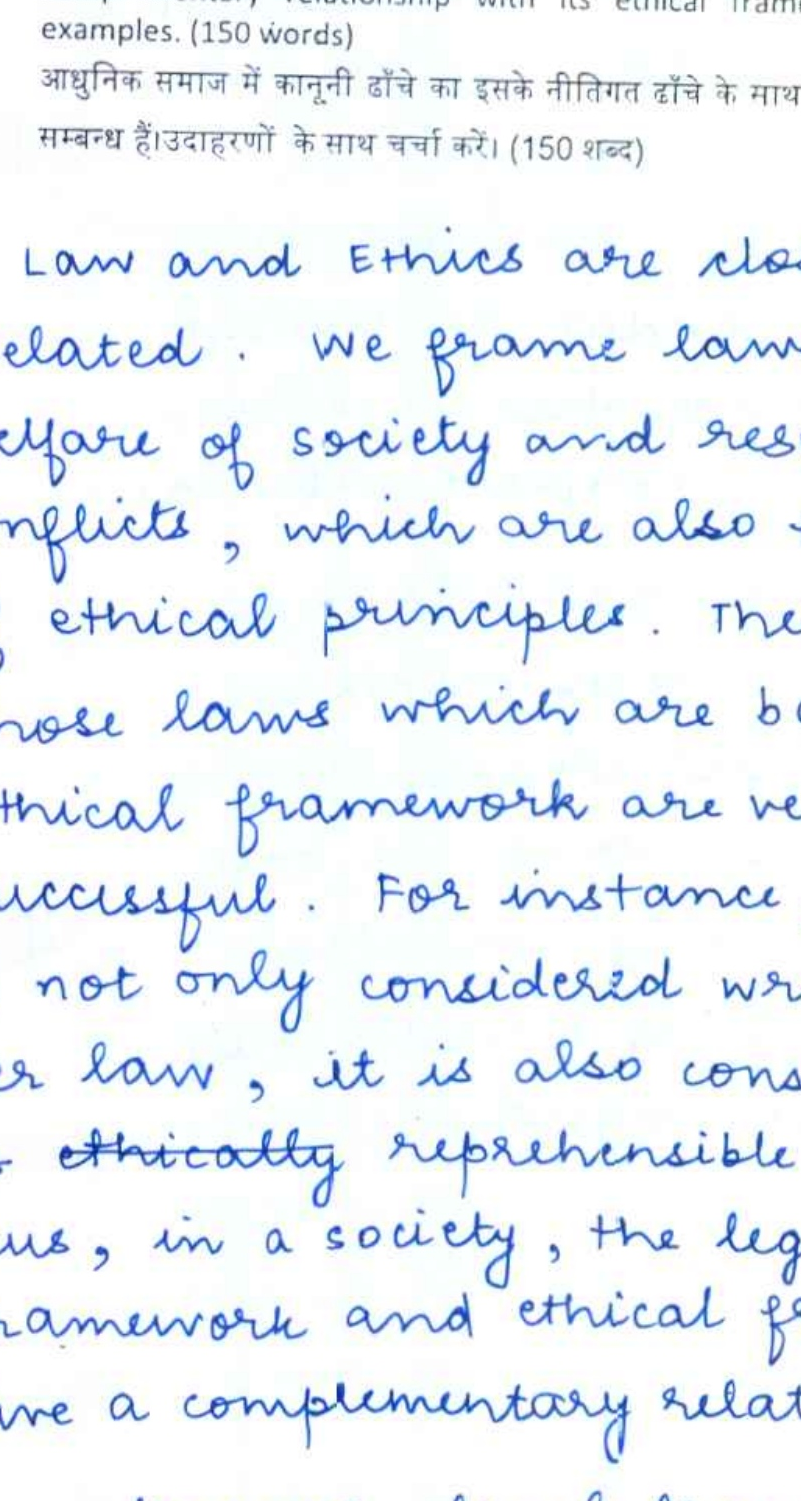 relationship with its ethical
examples. (150 words)
आधुनिक समाज में कानूनी ढाँचे का इसके नीतिगत ढाँचे के साथ
सम्बन्ध हैं।उदाहरणों के साथ चर्चा करें। (150 शब्द)
Law and Ethics are clo
elated . We frame law
elfare of society and res
nflicts , which are also
ethical principles . The
hose laws which are b
thical framework are ve
uccessful . For instance
not only considered wr
er law , it is also cons
ethically reprehensible
us , in a society , the leg
ramework and ethical fr
ave a complementary relat